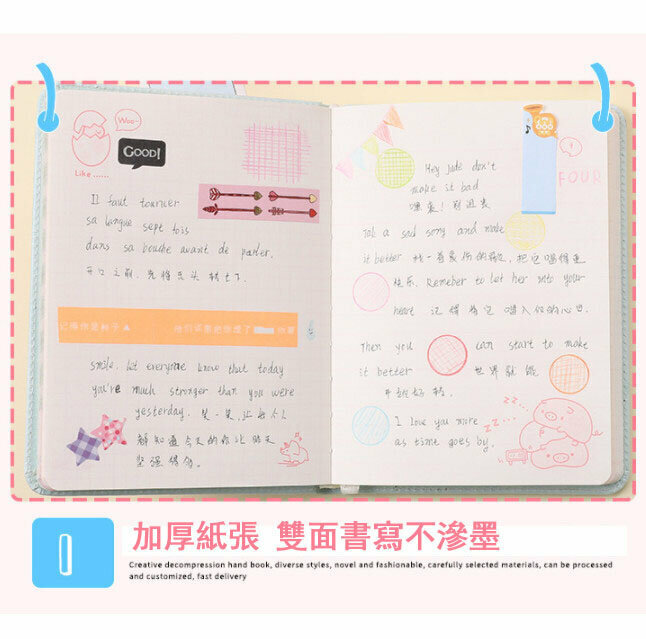 Woo~
GOOD!
Like ......
Il faut tourner
sa langue sept fois
dans sa bouche avant de parler.
开口之前,先将舌头转七下.
smile, let everyone know that today
you're much stronger than you were
yesterday. 笑一笑,让每个人
都知道今天的你比昨天
坚强得多。
FOUR
Hey Jude don't
make it bad
嘿裘!别沮丧
Tak a sad song and make
it better 找一首哀伤的歌,把它唱得更
快乐. Remeber to let her into your
heart 记得将它唱入你的心田.
Then you can start to make
it better 世界就能
开始好转.
I love you more
as time goes by.
zz..
zzz...
加厚紙張 雙面書寫不滲墨
Creative decompression hand book, diverse styles, novel and fashionable, carefully selected materials, can be processed
and customized, fast delivery